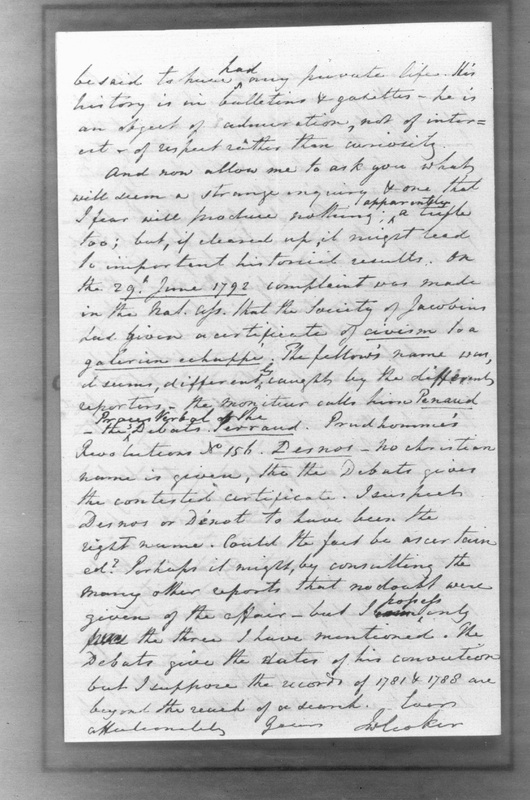 be said to have had any private life. His
history is in bulletins & gazettes – he is
an object of admiration, not of inter=
est – of respect rather than curiosity.
And now allow me to ask you what
will seem a strange enquiry & one that
I fear will produce nothing: apparently a trifle
too; but, if cleared up, it might lead
to important historical results. On
the 29th June 1792 complaint was made
in the Nat. Ass. that the Society of Jacobins
had given a certificate of civism to a
galerien echappé. The fellow's name was,
it seems, differently caught by the different
reporters – the moniteur calls him Penaud
– the Procès Verbal of the Debats. Perraud. Prudhomme's
Revolutions No 156. Desnos – no christian
name is given, tho the Debats gives
the contested certificate. I suspect
Desnos or Dénot to have been the
right name. Could the fact be ascertain
ed? Perhaps it might, by consulting the
many other reports that no doubt were
given of the affair – but I possess only
the three I have mentioned. The
Debats give the dates of his conviction
but I suppose the records of 1781 & 1788 are
beyond the reach of a search. Ever
affectionately Yours JWCroker